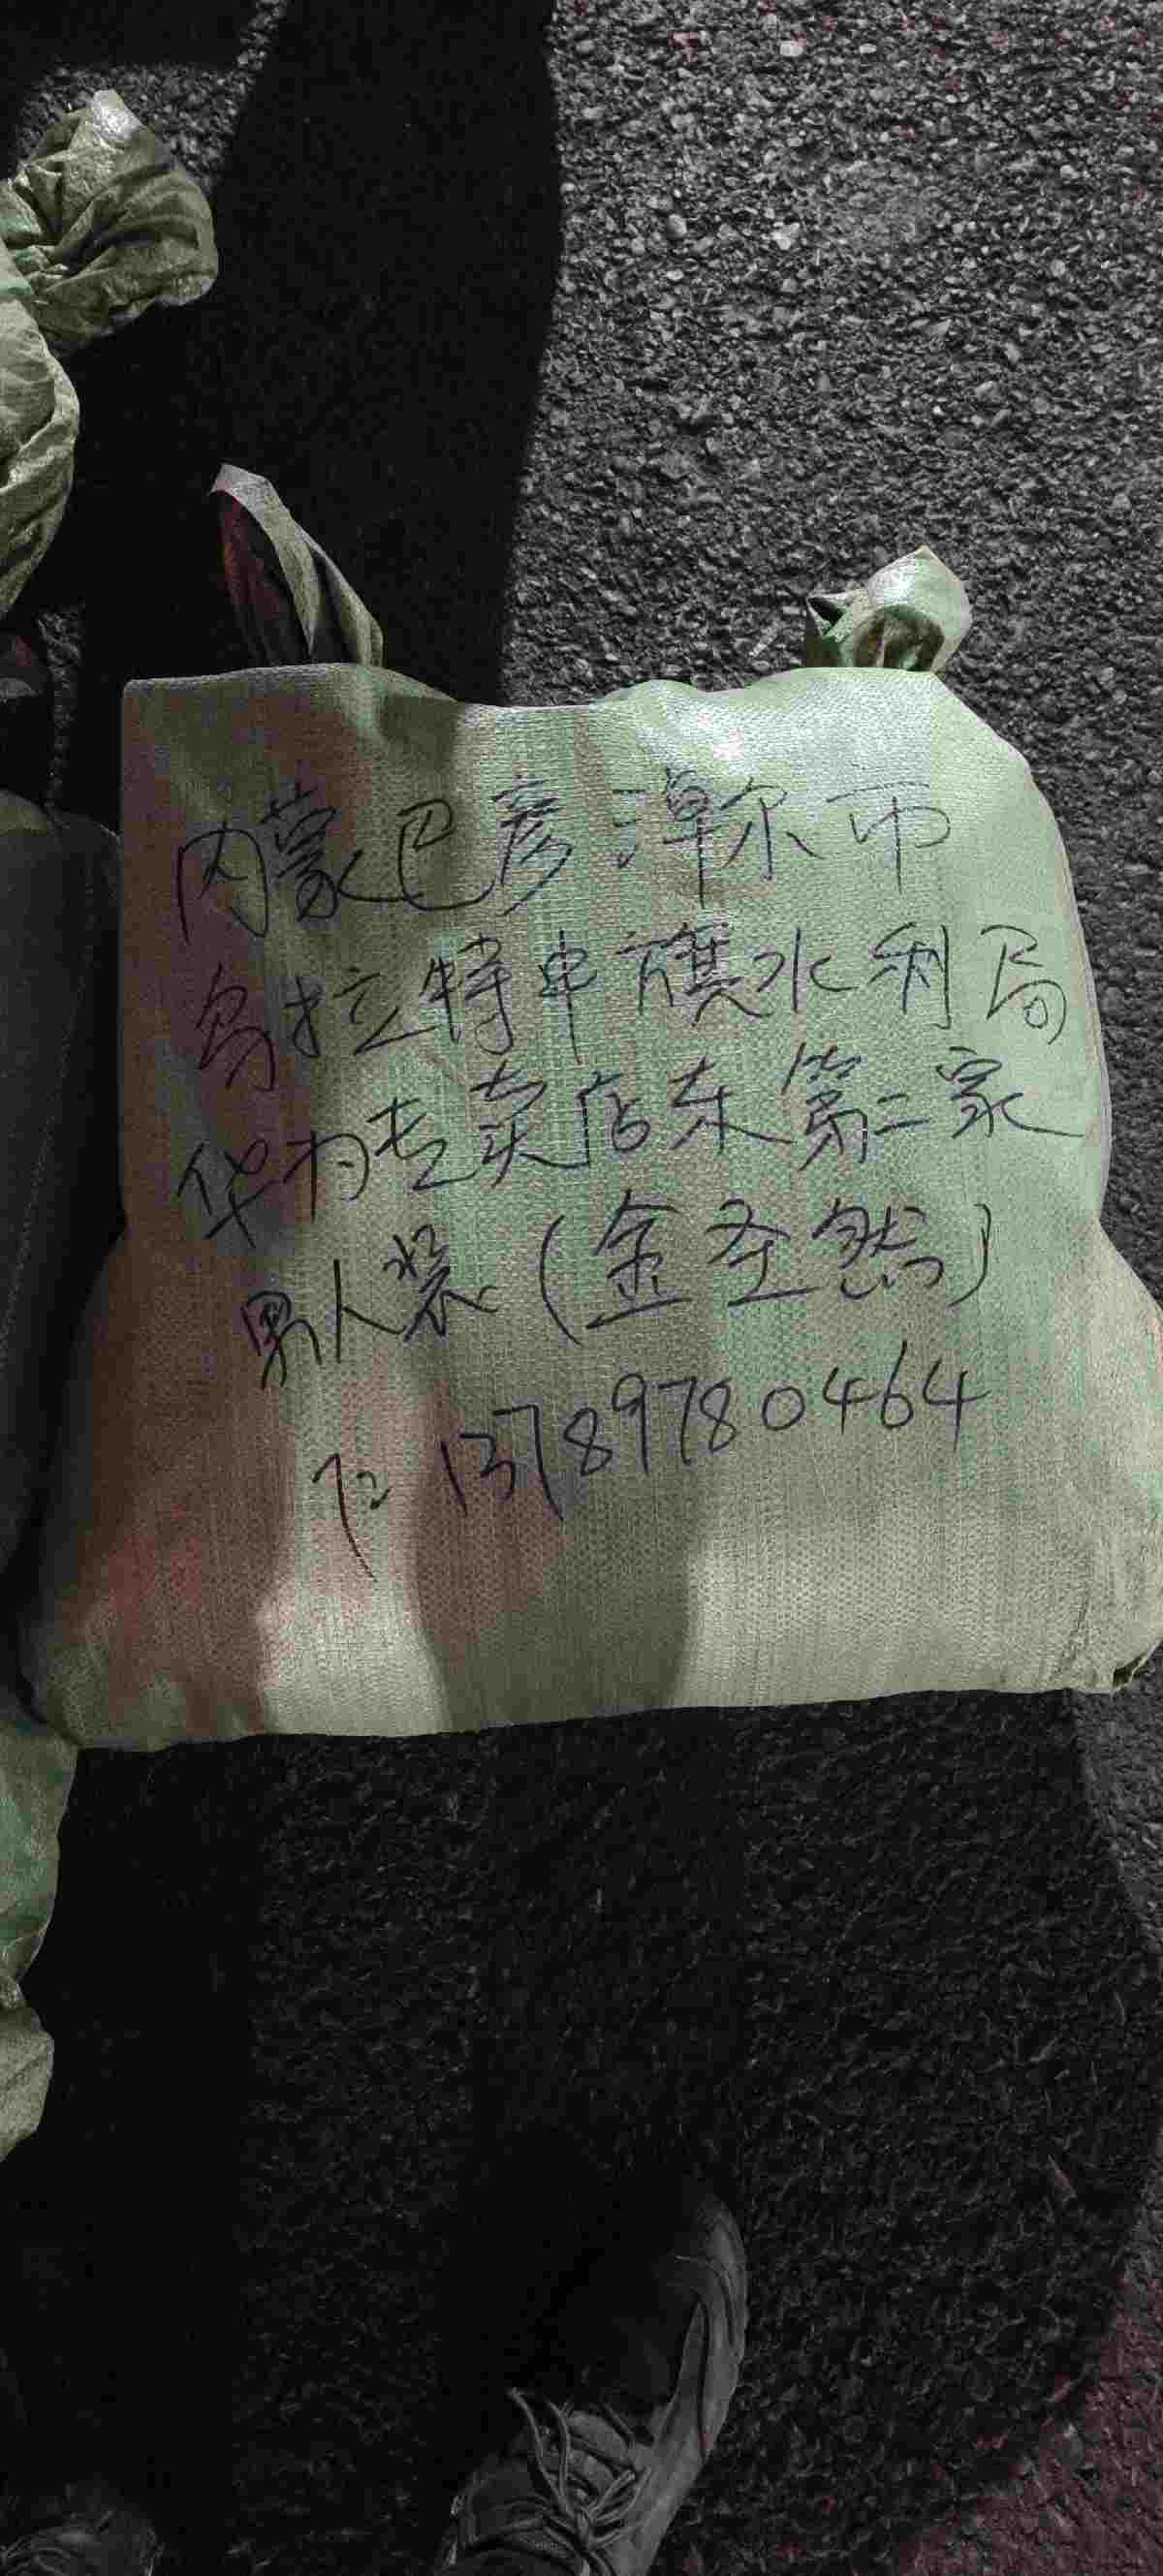 内蒙巴彦淖尔市
乌拉特中旗水利局
华为专卖店东第二家
男人装(金圣然)
T: 13789780464